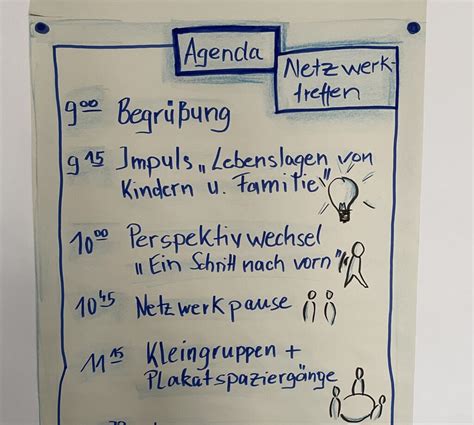 Agenda
Netzwerk-
treffen
9⁰⁰ Begrüßung
9¹⁵ Impuls „Lebenslagen von
Kindern u. Familie"
10⁰⁰ Perspektivwechsel
„Ein Schritt nach vorn"
10⁴⁵ Netzwerkpause
11¹⁵ Kleingruppen +
Plakatspaziergänge